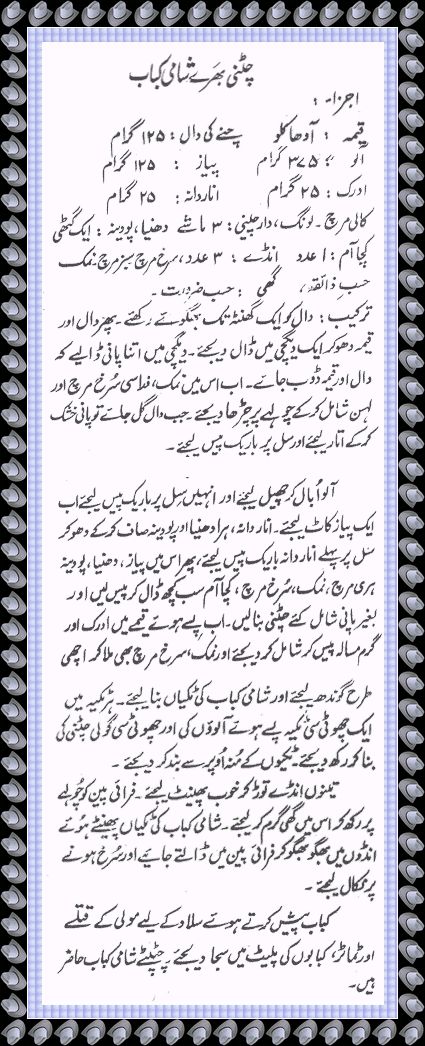 چٹنی بھرے شامی کباب
اجزاء :
قیمہ : آدھا کلو چنے کی دال : ۱۲۵ گرام
آلو : ۳۷۵ گرام پیاز : ۱۲۵ گرام
ادرک : ۲۵ گرام اناردانہ : ۲۵ گرام
کالی مرچ - لونگ، دارچینی : ۳ ماشے دھنیا، پودینہ : ایک گٹھی
کچا آم : ۱ عدد انڈے : ۳ عدد، سرخ مرچ سبز مرچ - نمک
حسبِ ذائقہ، گھی : حسب ضرورت -
ترکیب : دال کو ایک گھنٹہ تک بھگوئے رکھئے - پھر دال اور
قیمہ دھو کر ایک دیگچی میں ڈال دیجئے - دیگچی میں اتنا پانی ڈالیے کہ
دال اور قیمہ ڈوب جائے - اب اس میں نمک، ذرا سی سُرخ مرچ اور
لہسن شامل کر کے چولہے پر چڑھا دیجئے - جب دال گل جائے تو پانی خشک
کر کے اتار لیجئے اور سل پر باریک پیس لیجئے -
آلو اُبال کر چھیل لیجئے اور انہیں سِل پر باریک پیس لیجئے اب
ایک پیاز کاٹ لیجئے - انار دانہ، ہرا دھنیا اور پودینہ صاف کر کے دھو کر
سل پر پہلے انار دانہ باریک پیس لیجئے، پھر اس میں پیاز، دھنیا، پودینہ
ہری مرچ، نمک، سُرخ مرچ، کچا آم سب کچھ ڈال کر پیس لیں اور
بغیر پانی شامل کئے چٹنی بنا لیں - اب پسے ہوئے قیمے میں ادرک اور
گرم مسالہ پیس کر شامل کر دیجئے اور نمک، سرخ مرچ بھی ملا کر اچھی
طرح گوندھ لیجئے اور شامی کباب کی ٹکیاں بنا لیجئے - ہر ٹکیہ میں
ایک چھوٹی سی ٹکیہ پسے ہوئے آلوؤں کی اور چھوٹی سی گولی چٹنی کی
بنا کر رکھ دیجئے - ٹکیوں کے مُنہ اُوپر سے بند کر دیجئے -
تینوں انڈے توڑ کر خوب پھینٹ لیجئے - فرائی پین کو چولہے
پر رکھ کر اس میں گھی گرم کر لیجئے - شامی کباب کی ٹکیاں پھینٹے ہوئے
انڈوں میں بھگو بھگو کر فرائی پین میں ڈالتے جائیے اور سُرخ ہونے
پر نکال لیجئے -
کباب پیش کرتے ہوئے سلاد کے لیے مولی کے قتلے
اور ٹماٹر، کبابوں کی پلیٹ میں سجا دیجئے - چٹپٹے شامی کباب حاضر
ہیں -